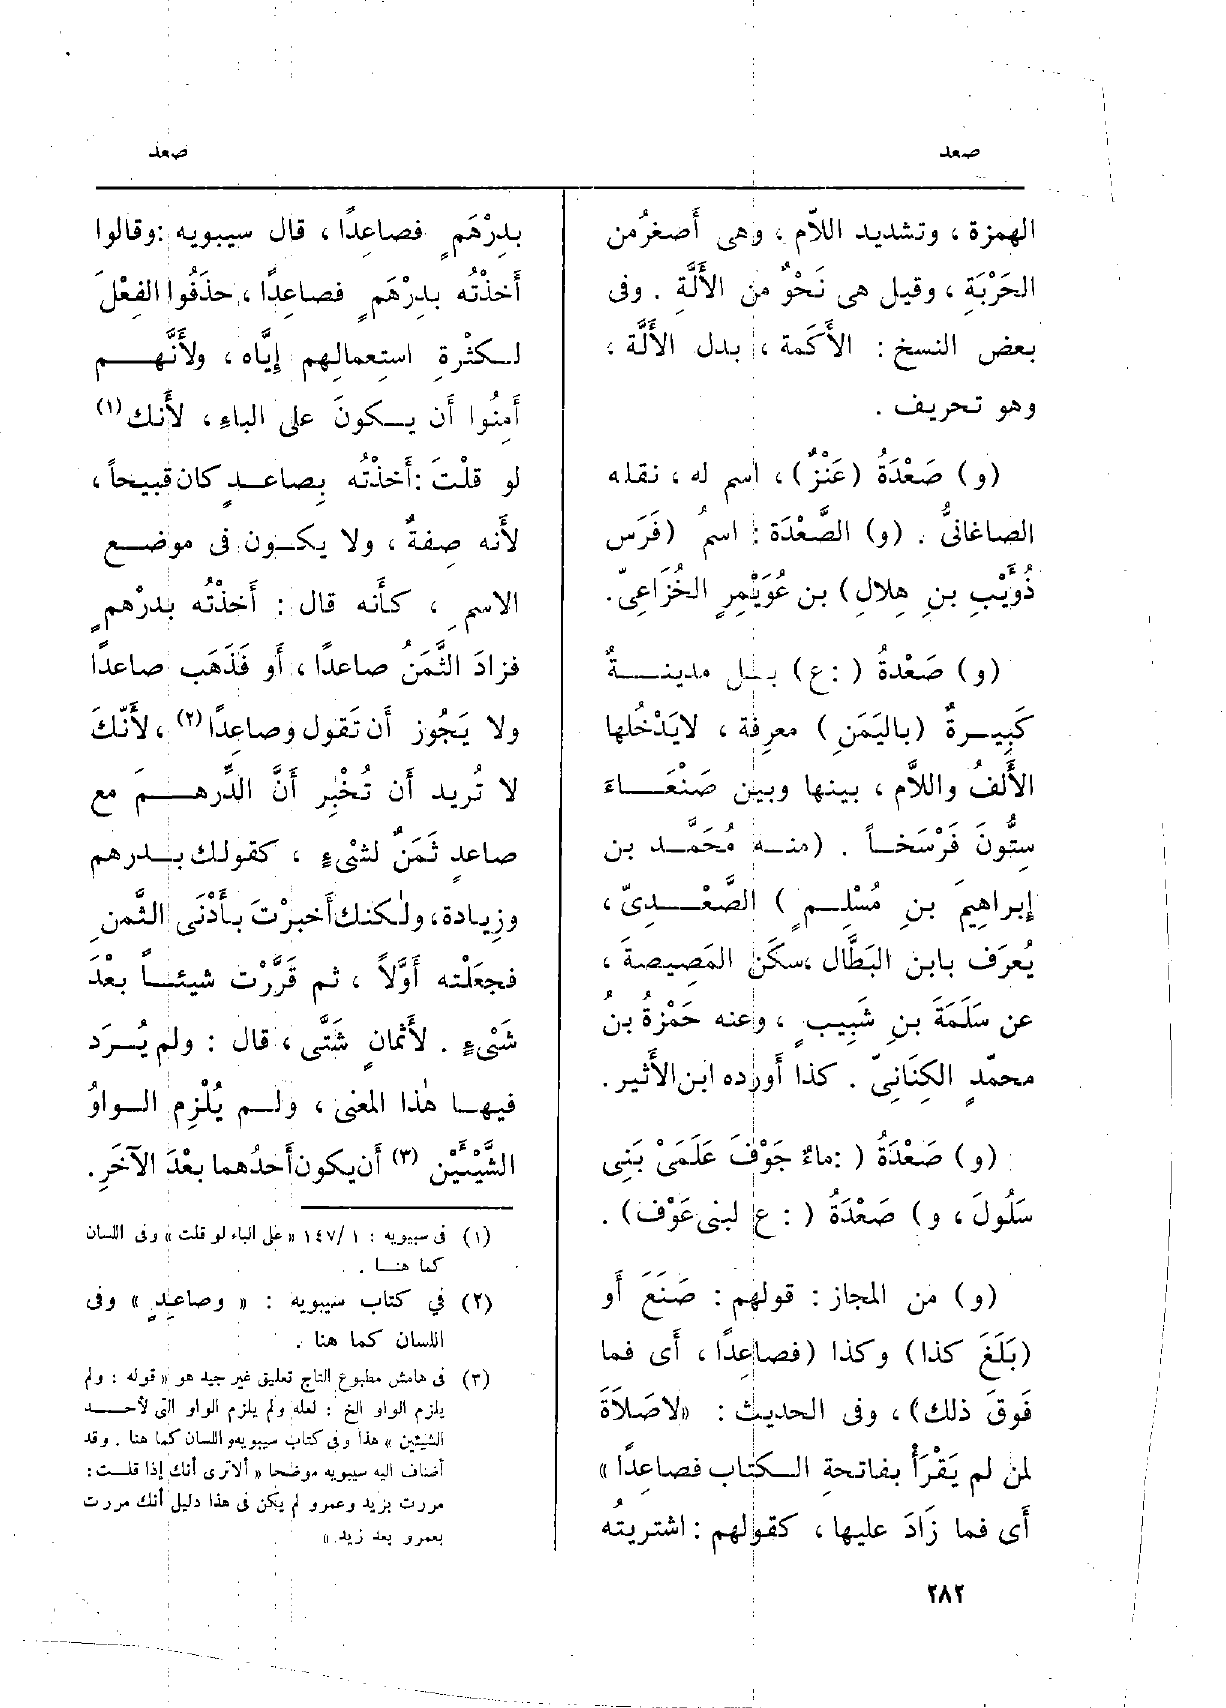 صعد
صعد
الهمزة ، وتشديد اللاّم ، وهى أَصغرُ من
الحَرْبَةِ ، وقيل هى نَحْوٌ من الأَلَّةِ . وفى
بعض النسخ : الأَكمة ، بدل الأَلَّة ،
وهو تحريف .
(و) صَعْدَةُ (عَنْزٌ) ، اسم له ، نقله
الصاغانىُّ . (و) الصَّعْدَة : اسمُ (فَرَس
ذُوَّيْبِ بنِ هِلالِ) بن عُوَيْمِرٍ الخُزَاعِىّ .
(و) صَعْدةُ ( : ع) بل مدينــةٌ
كَبِيرةٌ (باليَمَنِ) معرِفة ، لايَدْخُلها
الأَلفُ واللاَّم ، بينها وبين صَنْعَــاءَ
سِتُّونَ فَرْسَخــاً . (منــه مُحَمَّــد بن
إبراهِيمَ بنِ مُسْلِــمٍ ) الصَّعْــدِىّ ،
يُعرَف بابن البَطَّال ، سكَن المَصِيصةَ ،
عن سَلَمَةَ بنِ شَبِيبٍ ، وعنه حَمْزةُ بنُ
محمّدٍ الكِنَانِىّ . كذا أَورده ابن الأَثير .
(و) صَعْدَةُ ( : ماءٌ جَوْفَ عَلَمَىْ بَنِى
سَلُولَ ، و) صَعْدَةُ ( : ع لبنى عَوْف) .
(و) من المجاز : قولهم : صَنَعَ أَو
(بَلَغَ كذا) وكذا (فصاعِدًا ، أَى فما
فَوقَ ذلك) ، وفى الحديث : «لاصَلاَةَ
لمن لم يَقْرَأْ بفاتحةِ الــكتاب فصاعدًا»
أَى فما زَادَ عليها ، كقولهم : اشتريتُه
بدِرْهَمٍ فصاعِدًا ، قال سيبويه : وقالوا
أَخذْتُه بدِرْهَمٍ فصاعِدًا ، حذَفُوا الفِعْلَ
لــكثْرةِ استعمالِهم إِيَّاه ، ولأَنَّهــم
أَمِنُوا أَن يــكونَ على الباءِ ، لأَنك (١)
لو قلْتَ : أَخذْتُه بِصاعــدٍ كان قبيحاً ،
لأَنه صِفةٌ ، ولا يكــون فى موضــع
الاسمِ ، كأَنه قال : أَخذْتُه بدرْهمٍ
فزادَ الثَّمَنُ صاعدًا ، أَو فَذَهَب صاعدًا
ولا يَجُوز أَن تَقول وصاعِدًا (٢) ، لأَنّكَ
لا تُريد أَن تُخْبِر أَنَّ الدِّرهــمَ مع
صاعدٍ ثَمَنٌ لشىْءٍ ، كقولك بــدرهم
وزِيادة ، ولٰكنك أَخبرْتَ بأَدْنَى الثَّمنِ
فجعَلْته أَوَّلاً ، ثم قَرَّرْت شيئــاً بعْدَ
شَىْءٍ . لأَثمانٍ شَتَّى ، قال : ولم يُــرَد
فيهــا هٰذا المعنى ، ولــم يُلْزِم الــواوُ
الشَّيْئَيْن (٣) أَن يكون أَحدُهما بعْدَ الآخَرِ .
(١) فى سيبويه : ١/ ١٤٧ « على الباء لو قلت » وفى اللسان
كما هنــا .
(٢) في كتاب سيبويه : « وصاعِدٍ » وفى
اللسان كما هنا .
(٣) فى هامش مطبوع التاج تعليق غير جيد هو « قوله : ولم
يلزم الواو الخ : لعله ولم يلزم الواو التى لأحــد
الشيئين » هذا وفى كتاب سيبويه و اللسان كما هنا . وقد
أضاف اليه سيبويه موضحا « ألا ترى أنك إذا قلــت :
مررت بزيد وعمرو لم يكن فى هذا دليل أنك مررت
بعمرو بعد زيد »
٢٨٢